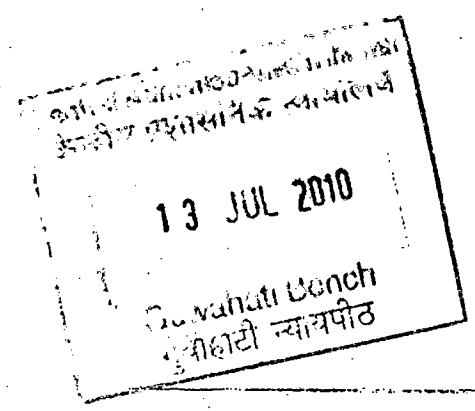 केन्द्रीय प्रशासनिक न्यायालय
13 JUL 2010
Guwahati Bench
गुवाहाटी न्यायपीठ